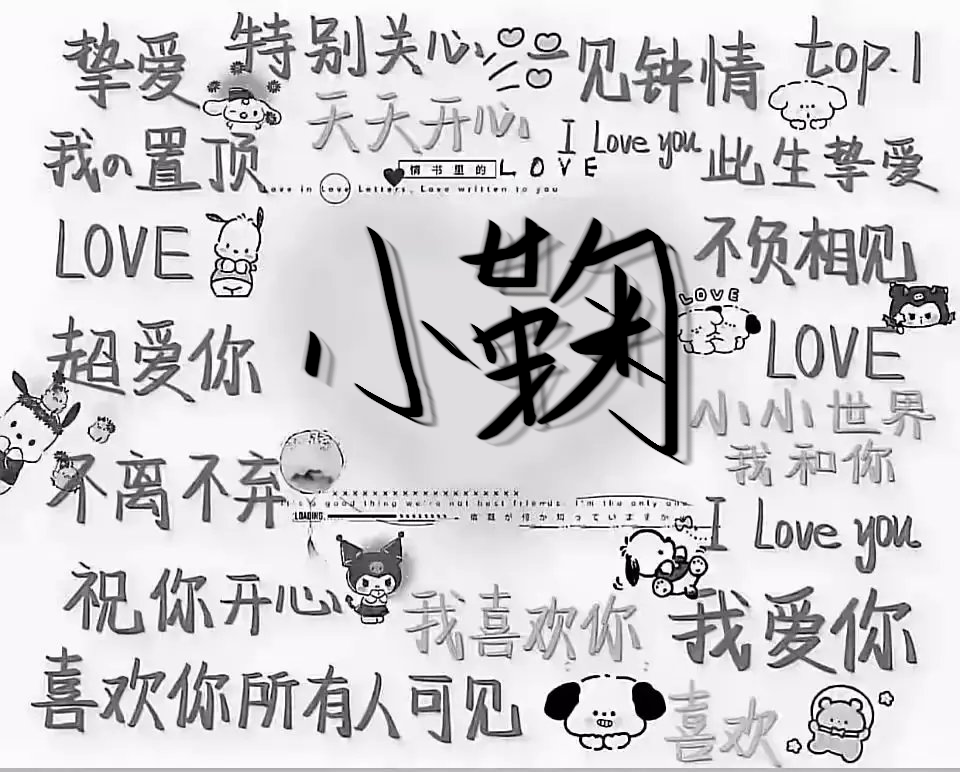 挚爱
特别关心
一见钟情
top.1
天天开心
I Love you
我の置顶
此生挚爱
情书里的
LOVE
Love in Love Letters, Love written to you
LOVE
不负相见
小鞠
LOVE
LOVE
超爱你
小小世界
我和你
不离不弃
It's a good thing we're not best friends. I'm the only one
LOADING
I Love you
祝你开心
我喜欢你
我爱你
喜欢你所有人可见
喜欢